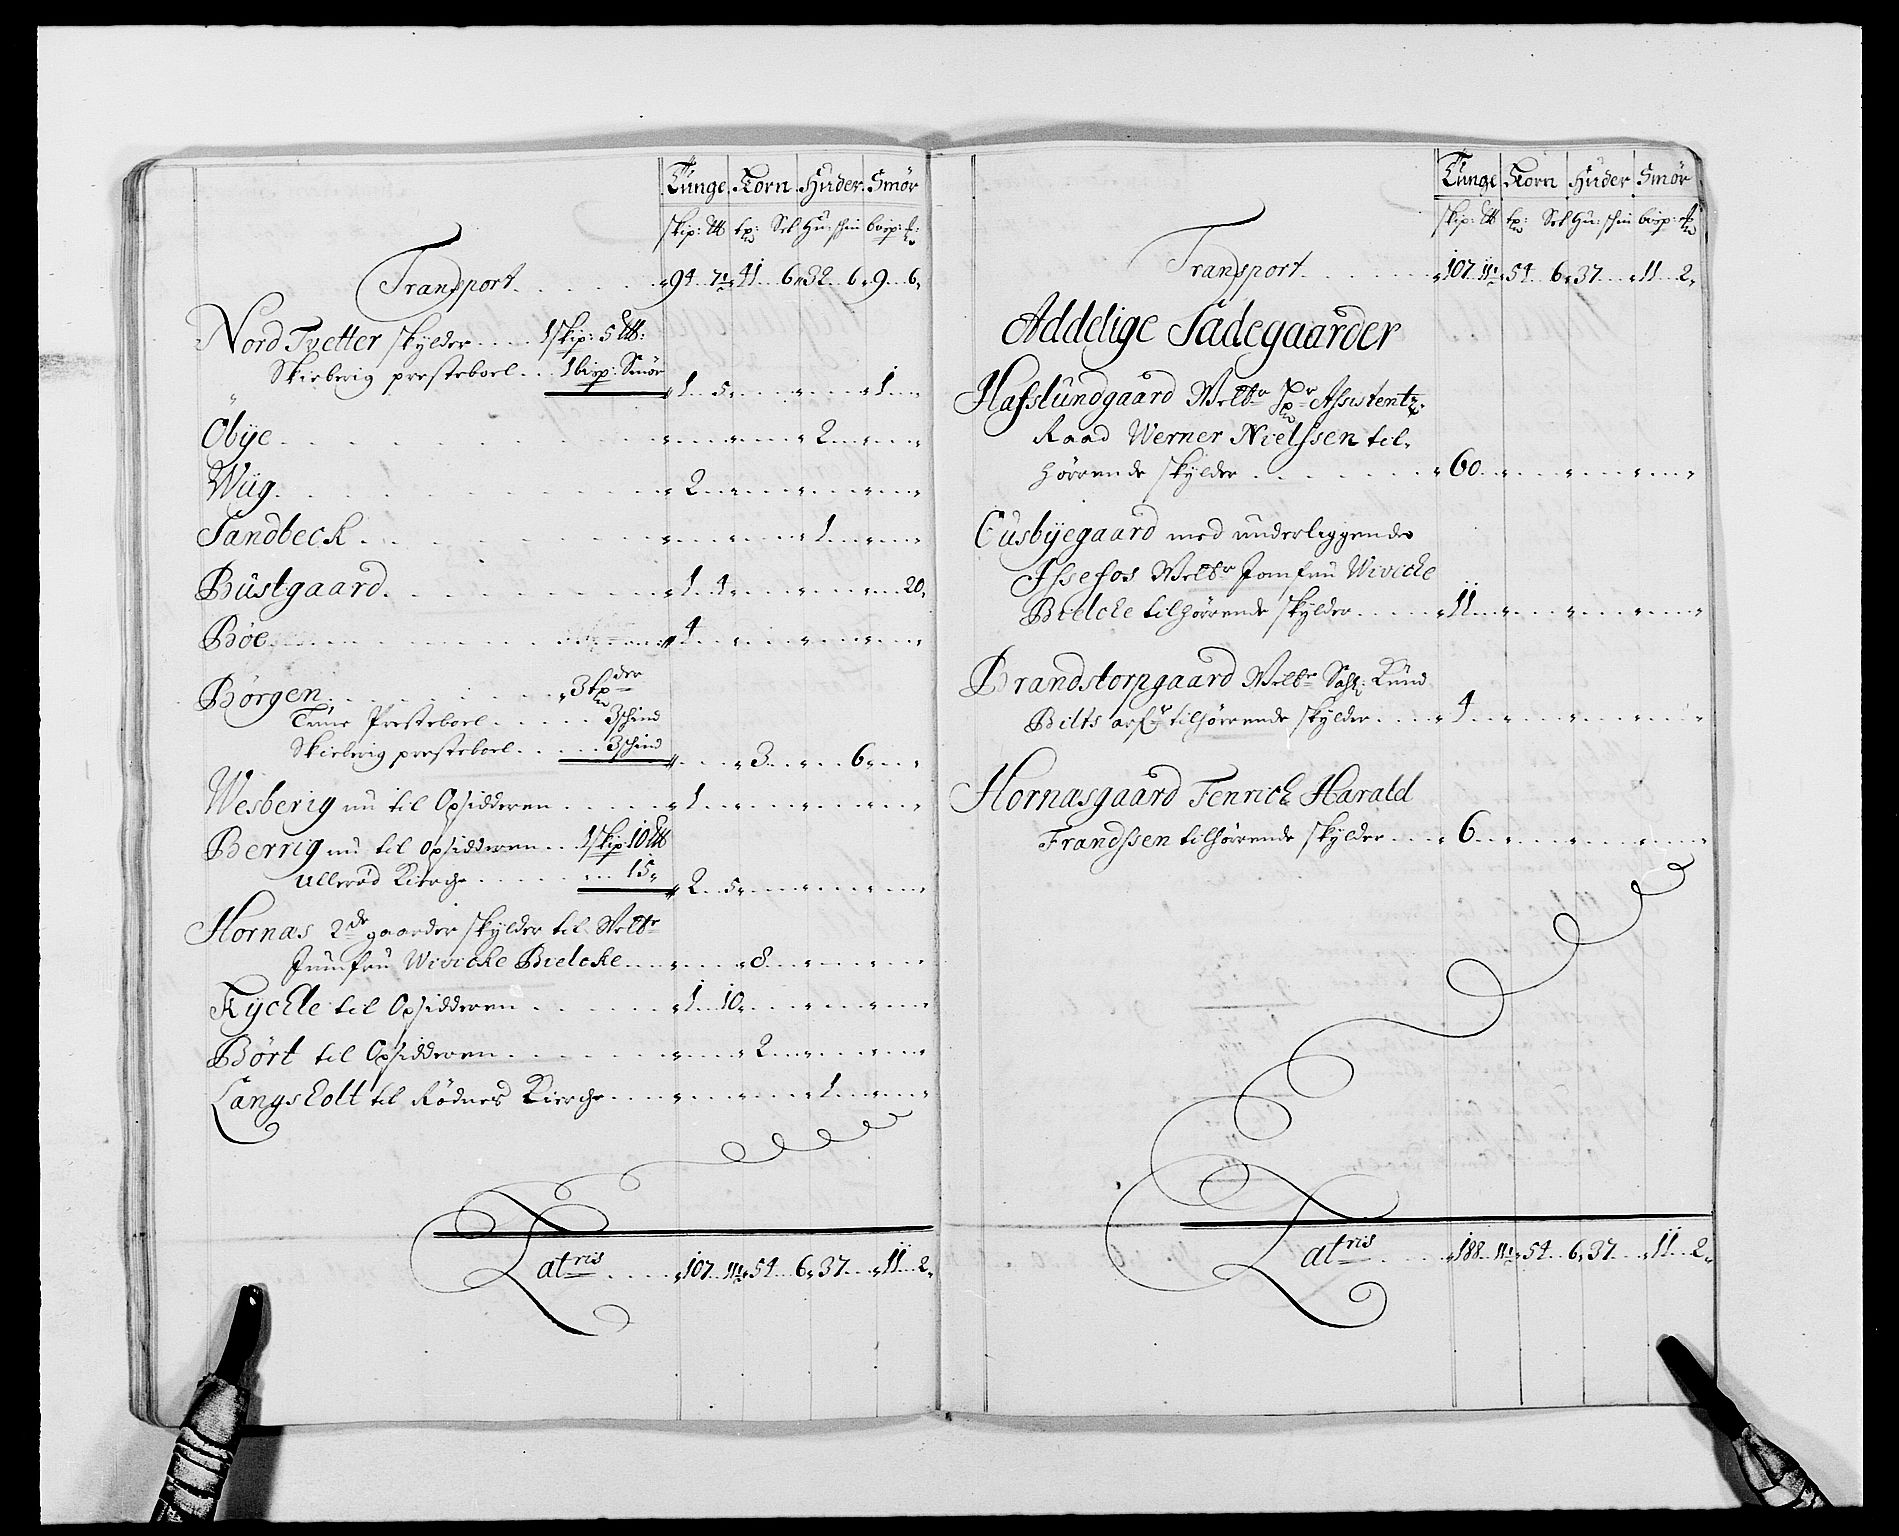 Tunge Korn Huder Smør
skip: ℔ tp: Set Hu: schin bisp: 
Transport . . . . . . 94 7½ 41 6 32 6 9 6
Nord Tvetter skylder . . . . 1 skip: 5 ℔:
Skieberig presteboel . . . 1 bisp: Smør
1 5 1
Öbÿe . . . . . 2
Wiig . . . . . 2
Sandbeck . . . . . 1
Büstgaard . . . . . 1 4 20
Böe . . . . . 4
Börgen . . . . . 3 tpder
Tune Presteboel . . . . . 3 schind
Skieberig presteboel . . . . . 3 schind
3 6
Wesberig nu til Opsidderen . . . . . 1
Berrig nu til opsidderen . . 1 skip 10 ℔
Ullerød Kierche . . . . . 15
2 5
Hornæs 2de gaarder skylder til Welbr
Jumfru Wivicke Bielcke . . . . 8
Kÿchle til Opsidderen . . . . . 1 10
Bört til Opsidderen . . . . . 2
Langsholt til Rödnes Kierche . . . . 1
Latris . . . . 107 11½ 54 6 37 11 2
Tunge Korn Huder Smör
skip: ℔ tp: Set Hu: schin bisp:
Transport . . . . . 107 11½ 54 6 37 11 2
Addelige Sadegaarder
Hafslundgaard Welbr Hr Assistentz
Raad Werner Nielssen til-
hörrende skylder . . . . . 60
Cusbÿegaard med underliggende
Issefos Welbr Jomfru Wivicke
Bielcke tilhörrende skylder . . . . . 11
Brandstorpgaard Welbr Sahl: Knud
Bilts arf: tilhörrende skylder . . . . 4
Hornæsgaard Fenrich Harald
Frandssen tilhörrende skylder . . . 6
Latris . . . . . 188 11½ 54 6 37 11 2